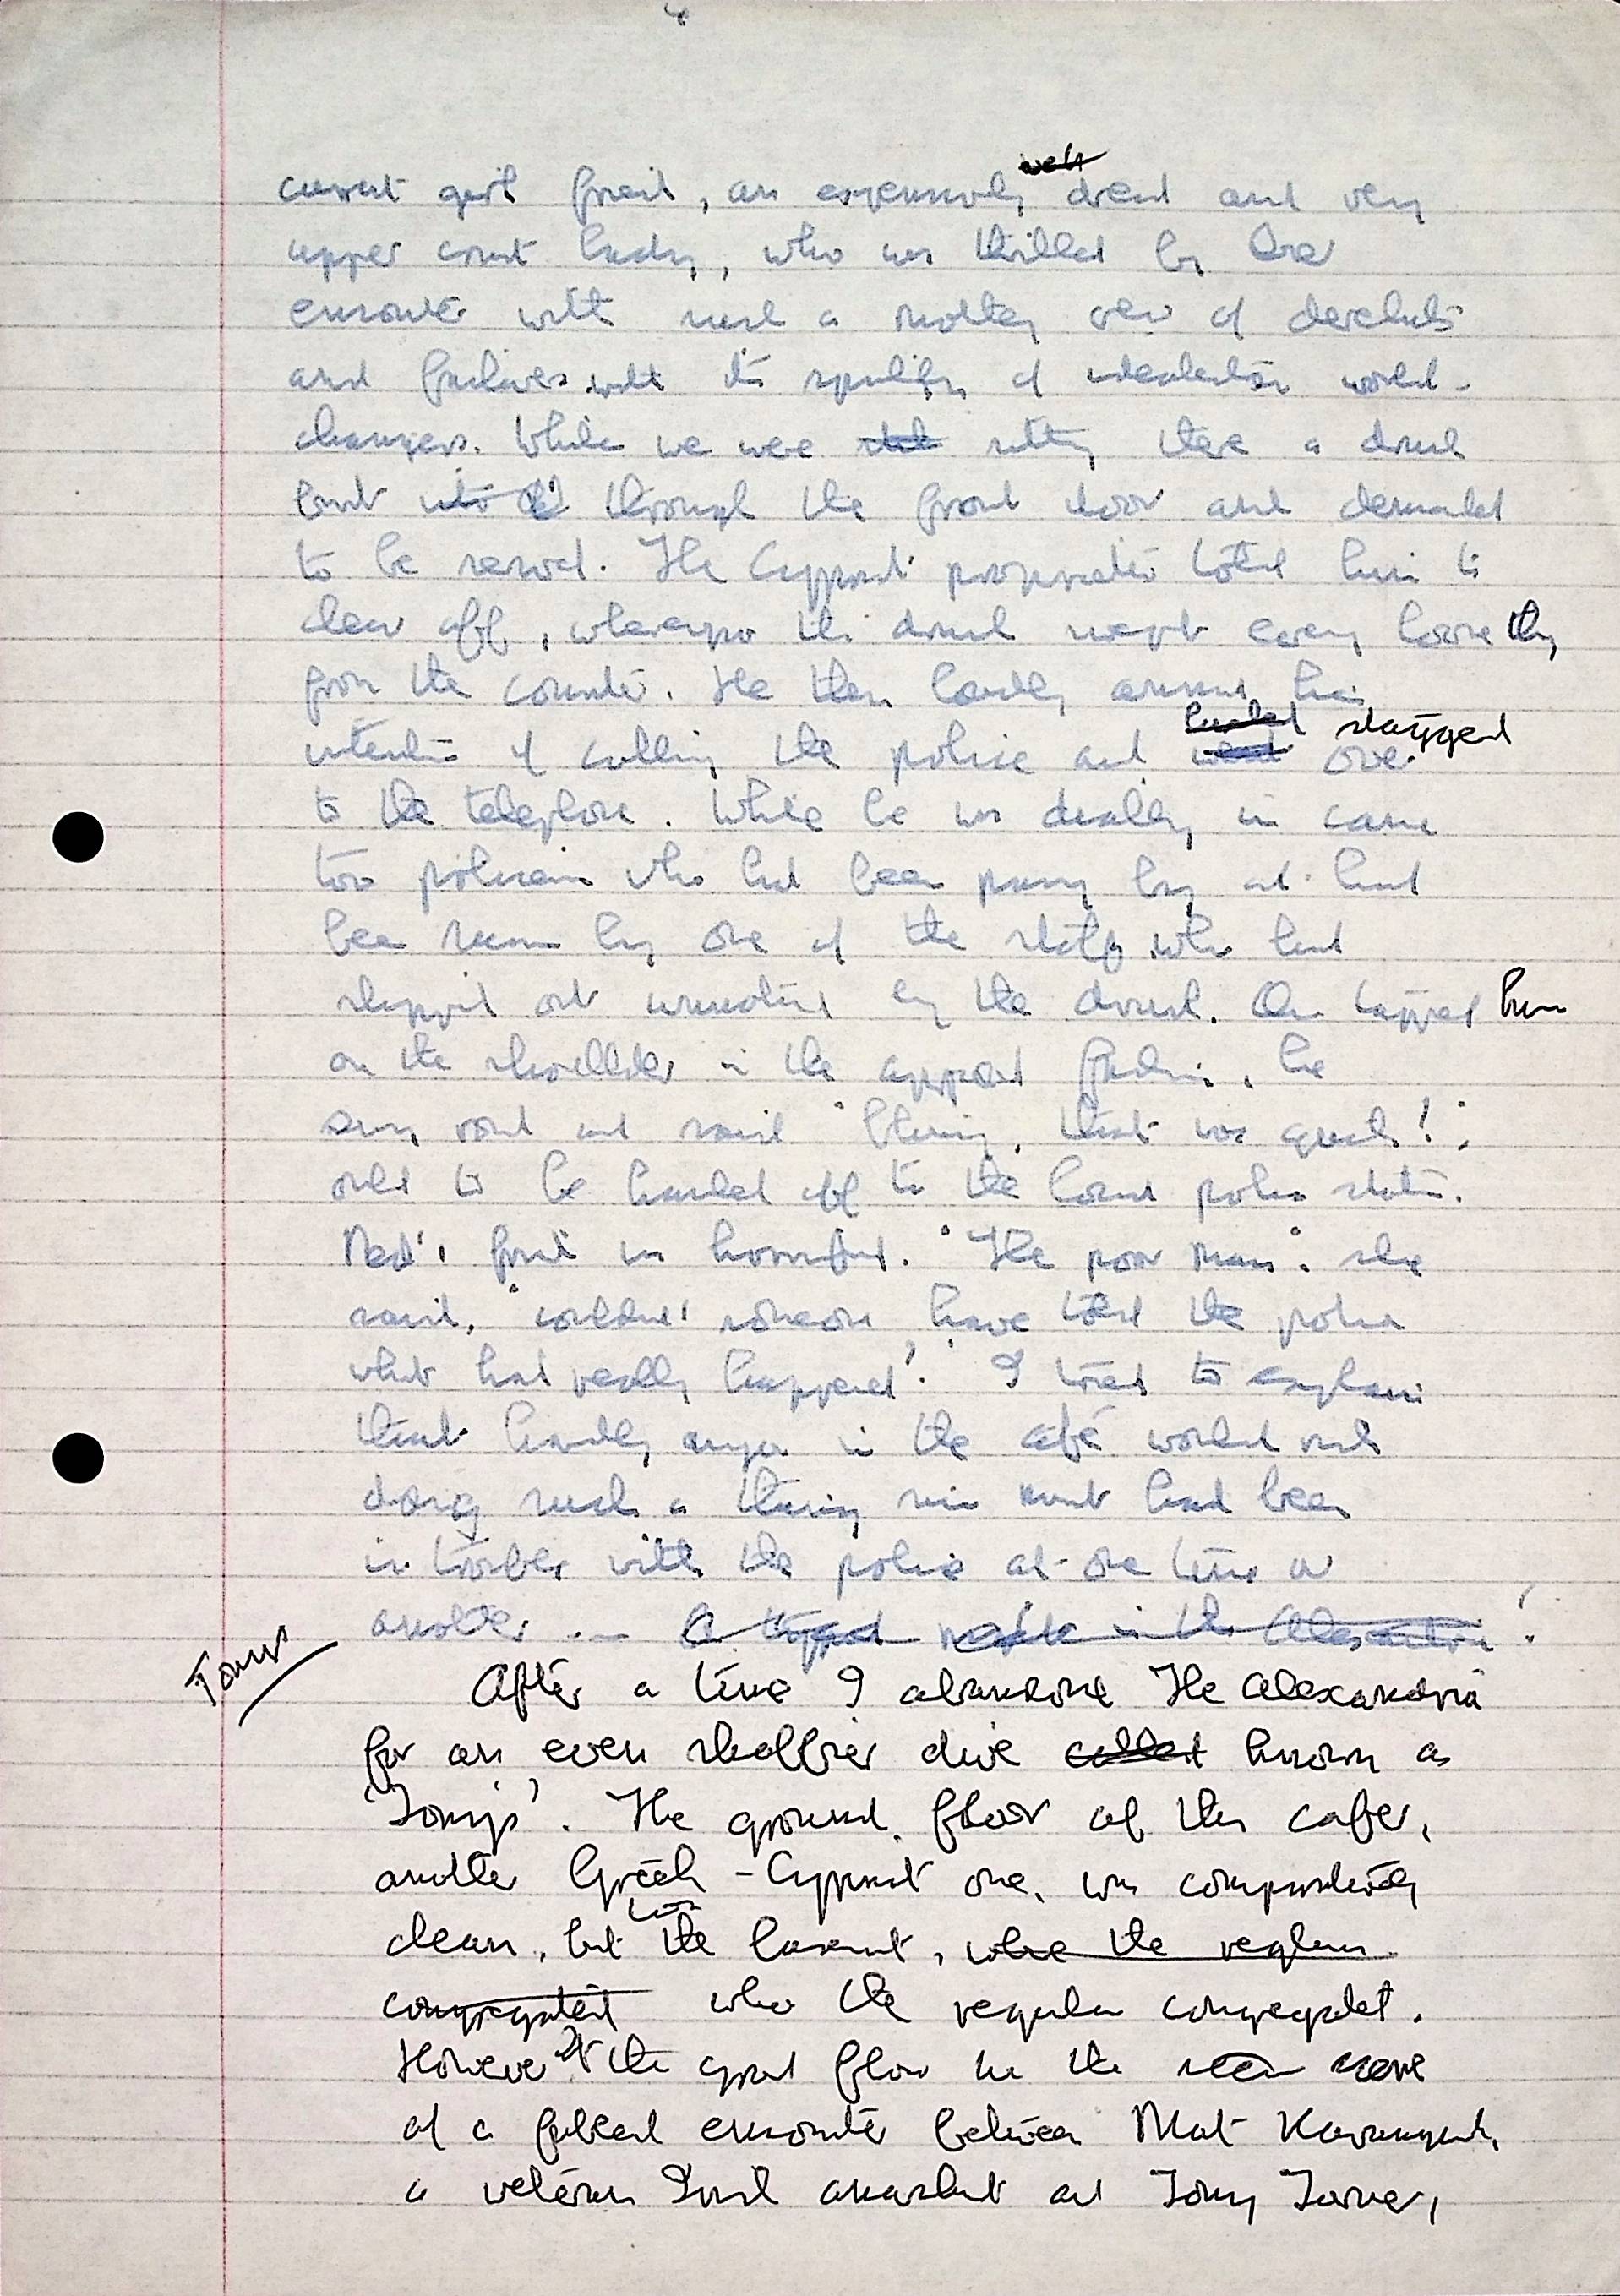 4
well
current girl friend, an expensively dressed and very
upper crust lady, who was thrilled by her
encounter with such a motley crew of derelicts
and failures with its sprinkling of idealistic world-
changers. While we were sitting there a drunk
burst into the through the front door and demanded
to be served. The Cypriot proprietor told him to
clear off, whereupon the drunk swept everything
from the counter. He then loudly announced his
lurched staggered
intention of calling the police and went over
to the telephone. While he was dialling in came
two policemen who had been passing by and had
been summoned by one of the staff who had
slipped out unnoticed by the drunk. One tapped him
on the shoulder in the approved fashion, he
swung round and said "Blimey, that was quick!",
only to be hauled off to the police station.
Ned's friend was horrified. "The poor man", she
said, "couldn't someone have told the police
what had really happened?" I tried to explain
that hardly anyone in the café would risk
doing such a thing since most had been
in trouble with the police at one time or
another ... A typical in the Alexandria!
After a time I abandoned The Alexandria
for an even shabbier dive called known as
'Tony's'. The ground floor of this cafe,
another Greek-Cypriot one, was comparatively
clean, but the basement, where the regulars
congregated who the regulars congregated.
However the ground floor was the scene
of a fabled encounter between Mat Kavanagh,
a veteran Irish anarchist and Tony Turner,